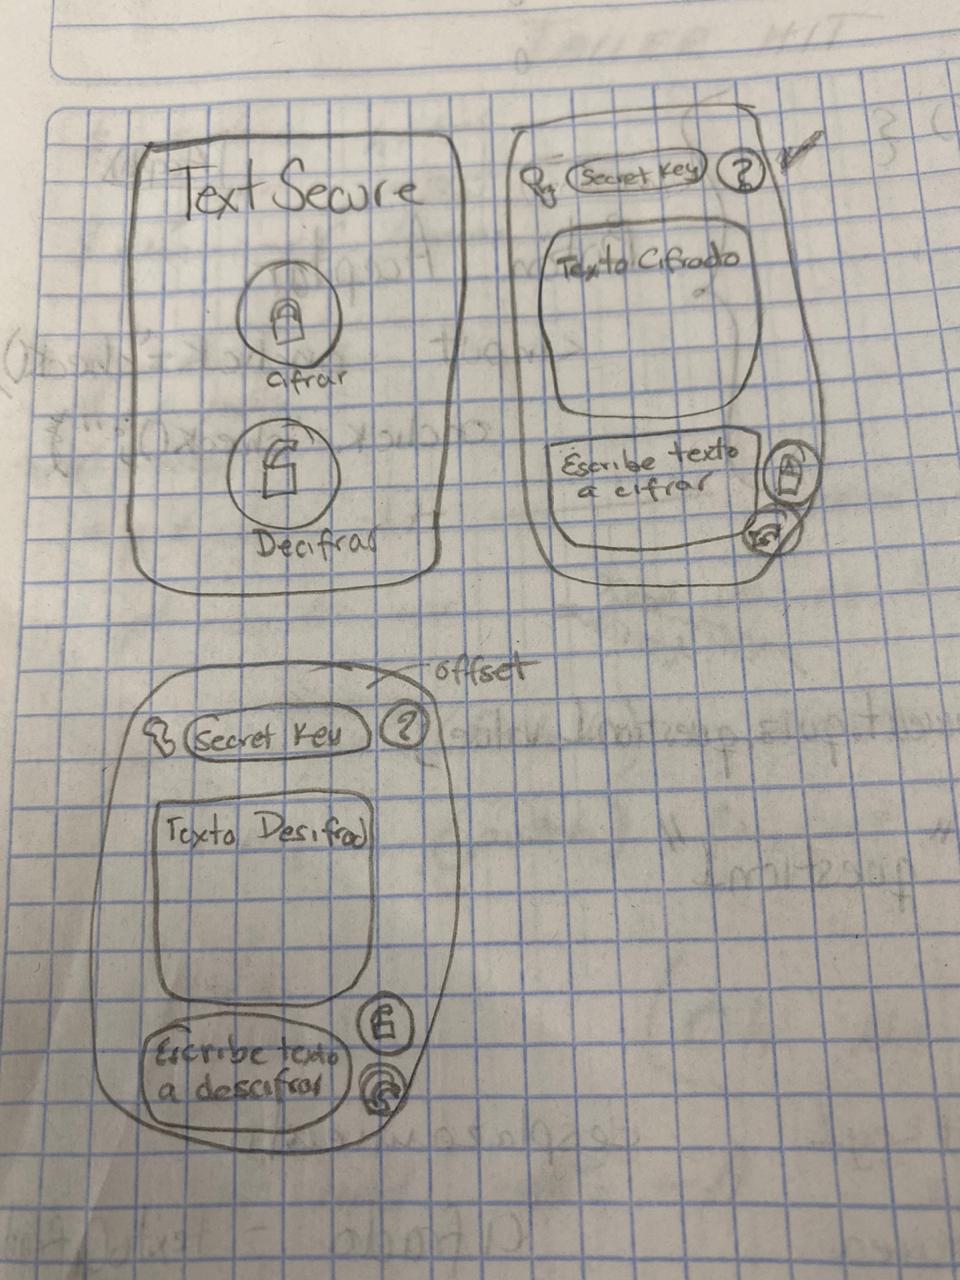 Text Secure
Cifrar
Decifrar
Secret Key ?
Texto Cifrado
Escribe texto
a cifrar
offset
Secret Key ?
Texto Desifrad
Escribe texto
a descifrar